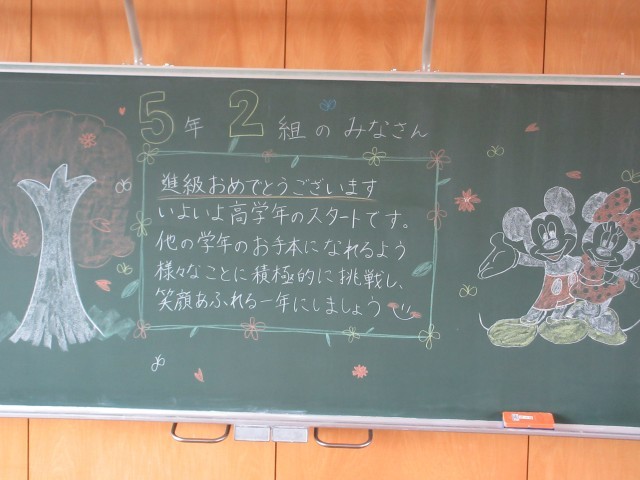 5年2組のみなさん
進級おめでとうございます
いよいよ高学年のスタートです。
他の学年のお手本になれるよう
様々なことに積極的に挑戦し、
笑顔あふれる一年にしましょう